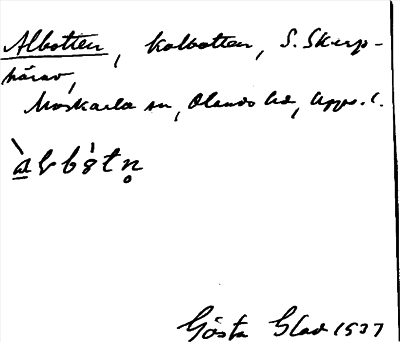 Albotten, kolbotten, S. Skerp-
hårar,
Morkarla sn, Olands hd, Upps. l.
a̲lbòtn̥
Gösta Glad 1937